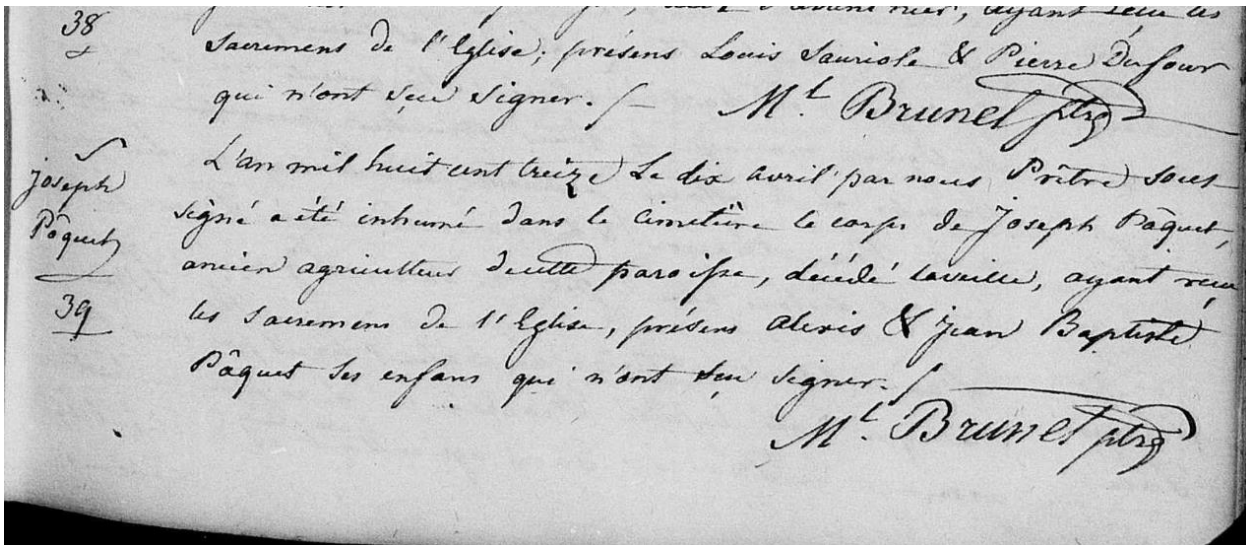 38
décédé d'avant hier, ayant reçu les
Sacremens de l'Eglise; présens Louis Sauriole & Pierre Dufour
qui n'ont sçu signer. /
Ml. Brunel ptre
joseph
Pâquet
39
L'an mil huit cent treize le dix avril par nous Prêtre sous-
signé a été inhumé dans le cimetière le corps de Joseph Pâquet,
ancien agriculteur decette paroisse, décédé laveille, ayant reçu
les sacremens de l'Eglise, présens alexis & jean Baptiste
Pâquet ses enfans qui n'ont sçu signer. /
Ml. Brunel ptre